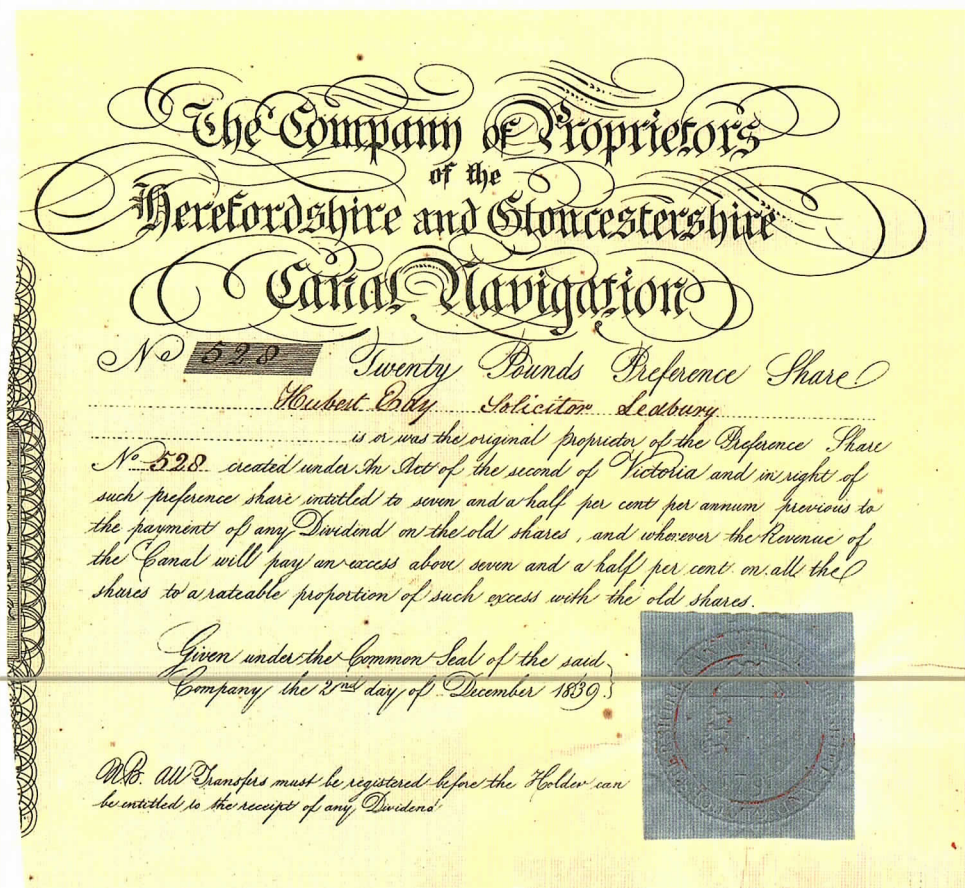 The Company of Proprietors
of the
Herefordshire and Gloucestershire
Canal Navigation
No 528 Twenty Pounds Preference Share
Hubert Edy Solicitor Ledbury
is or was the original proprietor of the Preference Share
No 528 created under An Act of the second of Victoria and in right of
such preference share intitled to seven and a half per cent per annum previous to
the payment of any Dividend on the old shares, and wherever the Revenue of
the Canal will pay an excess above seven and a half per cent on all the
shares to a rateable proportion of such excess with the old shares.
Given under the Common Seal of the said
Company the 2nd day of December 1839.
NB. All Transfers must be registered before the Holder can
be entitled to the receipt of any Dividend